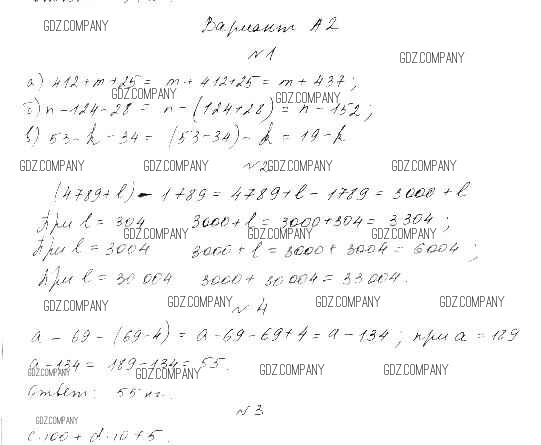 GDZ.COMPANY
Вариант А2
№1
GDZ.COMPANY
а) 412+m+25 = m+412+25 = m+437;
GDZ.COMPANY GDZ.COMPANY
б) n-124-28 = n-(124+28) = n-152;
в) 53-k-34 = (53-34)-k = 19-k
GDZ.COMPANY GDZ.COMPANY №2 GDZ.COMPANY GDZ.COMPANY
(4789+l)-1789 = 4789+l-1789 = 3000+l
При l = 304 3000+l = 3000+304 = 3304;
GDZ.COMPANY GDZ.COMPANY GDZ.COMPANY
При l = 3004 3000+l = 3000+3004 = 6004;
При l = 30 004 3000+30 004 = 33 004.
GDZ.COMPANY GDZ.COMPANY №4 GDZ.COMPANY GDZ.COMPANY
a-69-(69-4) = a-69-69+4 = a-134; при a = 189
a-134 = 189-134 = 55.
GDZ.COMPANY GDZ.COMPANY GDZ.COMPANY GDZ.COMPANY
Ответ: 55 кг.
№3
GDZ.COMPANY
c·100+d·10+5.